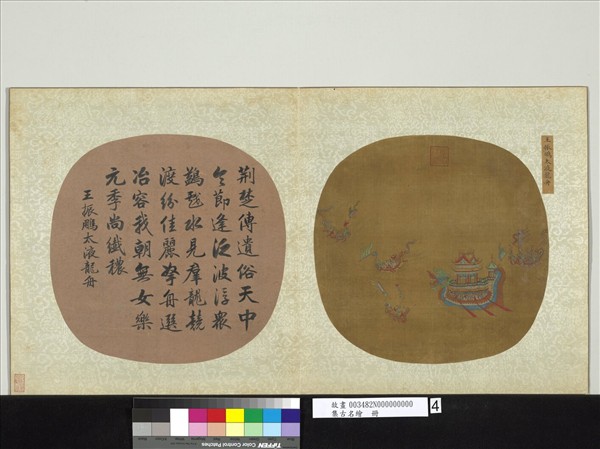 王振鵬太液龍舟
荆楚傳遺俗天中
令節逢泛波浮衆
鷁戲水見羣龍競
渡紛佳麗拏舟選
冶容我朝無女樂
元季尚纖穠
王振鵬太液龍舟
故畫 003482N000000000
集古名繪 冊
4
TIFFEN Color Control Patches